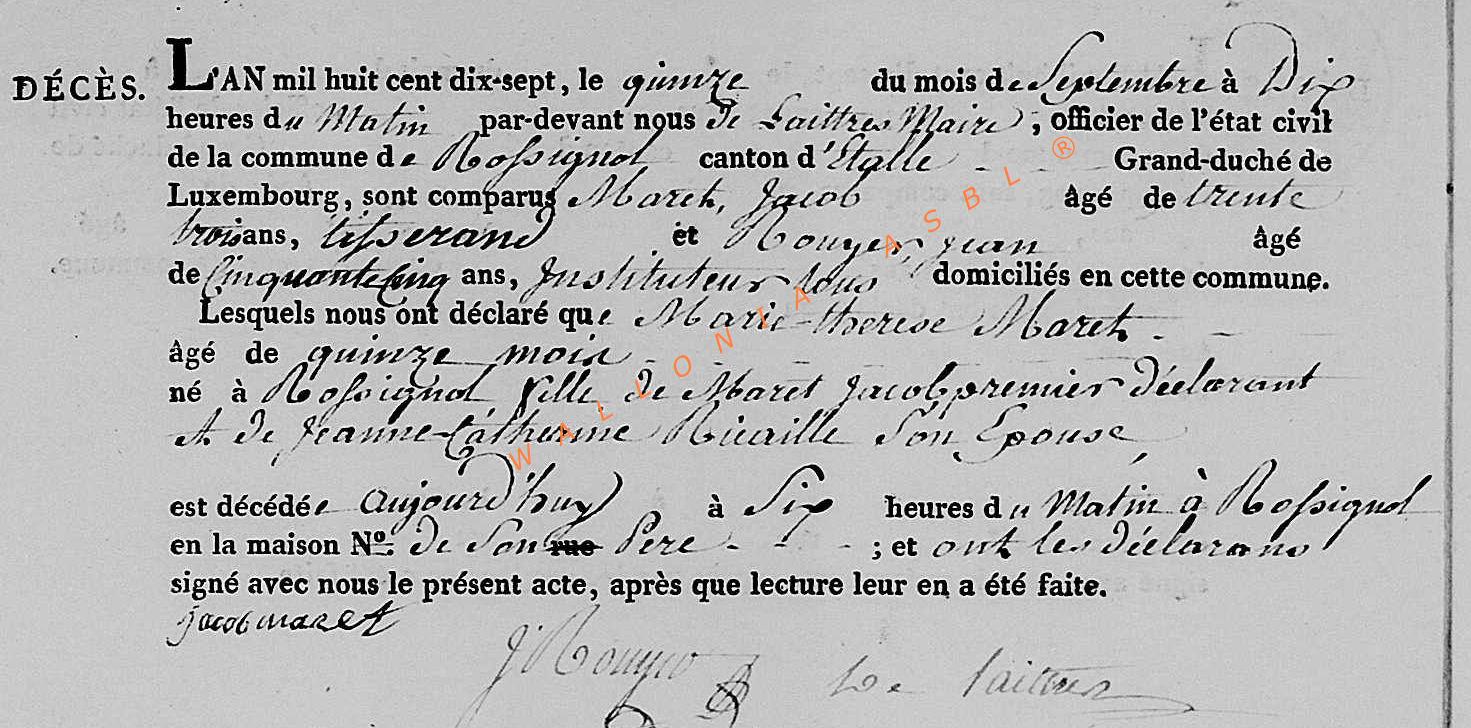 DÉCÈS. L'AN mil huit cent dix-sept, le quinze du mois de Septembre à Dix
heures du Matin par-devant nous de Laittres Maire ; officier de l'état civil
de la commune de Rossignol canton d'Etalle - - - Grand-duché de
Luxembourg, sont comparus Maret, Jacob âgé de trente
trois ans, tisserand et Rouyer, jean âgé
de Cinquante Cinq ans, Instituteur tous domiciliés en cette commune.
Lesquels nous ont déclaré que Marie-therese Maret. -
âgé de quinze mois -
né à Rossignol fille de Maret Jacob premier déclarant
et de Jeanne-Catherine Ricaille Son Epouse,
est décédée aujourd'huy à Six heures du Matin à Rossignol
en la maison No. de Son rue Pere - - - ; et ont les déclarans
signé avec nous le présent acte, après que lecture leur en a été faite.
jacob maret
J Rouyer De Laittres
WALLONIA ASBL ®